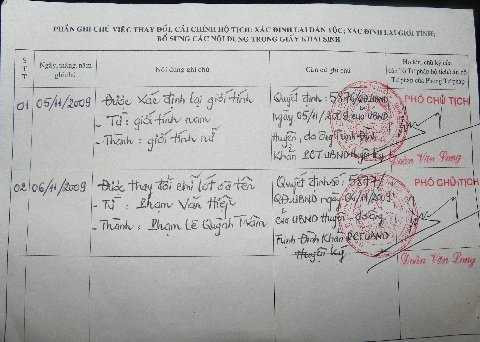 PHẦN GHI CHÚ VIỆC THAY ĐỔI, CẢI CHÍNH HỘ TỊCH; XÁC ĐỊNH LẠI DÂN TỘC; XÁC ĐỊNH LẠI GIỚI TÍNH;
BỔ SUNG CÁC NỘI DUNG TRONG GIẤY KHAI SINH
STT
Ngày, tháng, năm ghi chú
Nội dung ghi chú
Căn cứ ghi chú
Họ tên, chữ ký của cán bộ Tư pháp hộ tịch/cán bộ Tư pháp của Phòng Tư pháp
01
05/11/2009
Được Xác định lại giới tính
- Từ : giới tính nam
- Thành : giới tính nữ
Quyết định : 5876/QĐ.UBND
ngày 05/11/2009 của UBND
huyện, do ông Trịnh Đình
Khán PCT.UBND huyện ký
PHÓ CHỦ TỊCH
Đoàn Văn Long
02
06/11/2009
Được thay đổi chữ lót và tên
- Từ : Phạm Văn Hiệp
- Thành : Phạm Lê Quỳnh Trâm
Quyết định số : 5877/
QĐ.UBND ngày
của UBND Huyện do ông
Trịnh Đình Khán PCT UBND
Huyện ký
PHÓ CHỦ TỊCH
Đoàn Văn Long